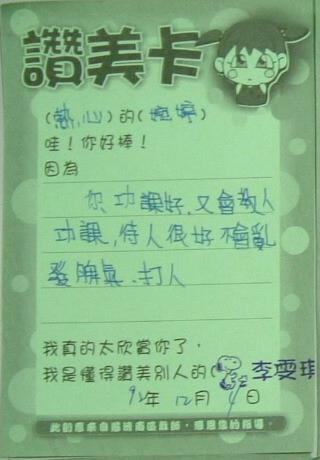 讚美卡
(熱心)的(婉婷)
哇！你好棒！
因為
你功課好、又會教人
功課，待人很好不會亂
發脾氣、打人
我真的太欣賞你了，
我是懂得讚美別人的( 李雯琪
年12月 日